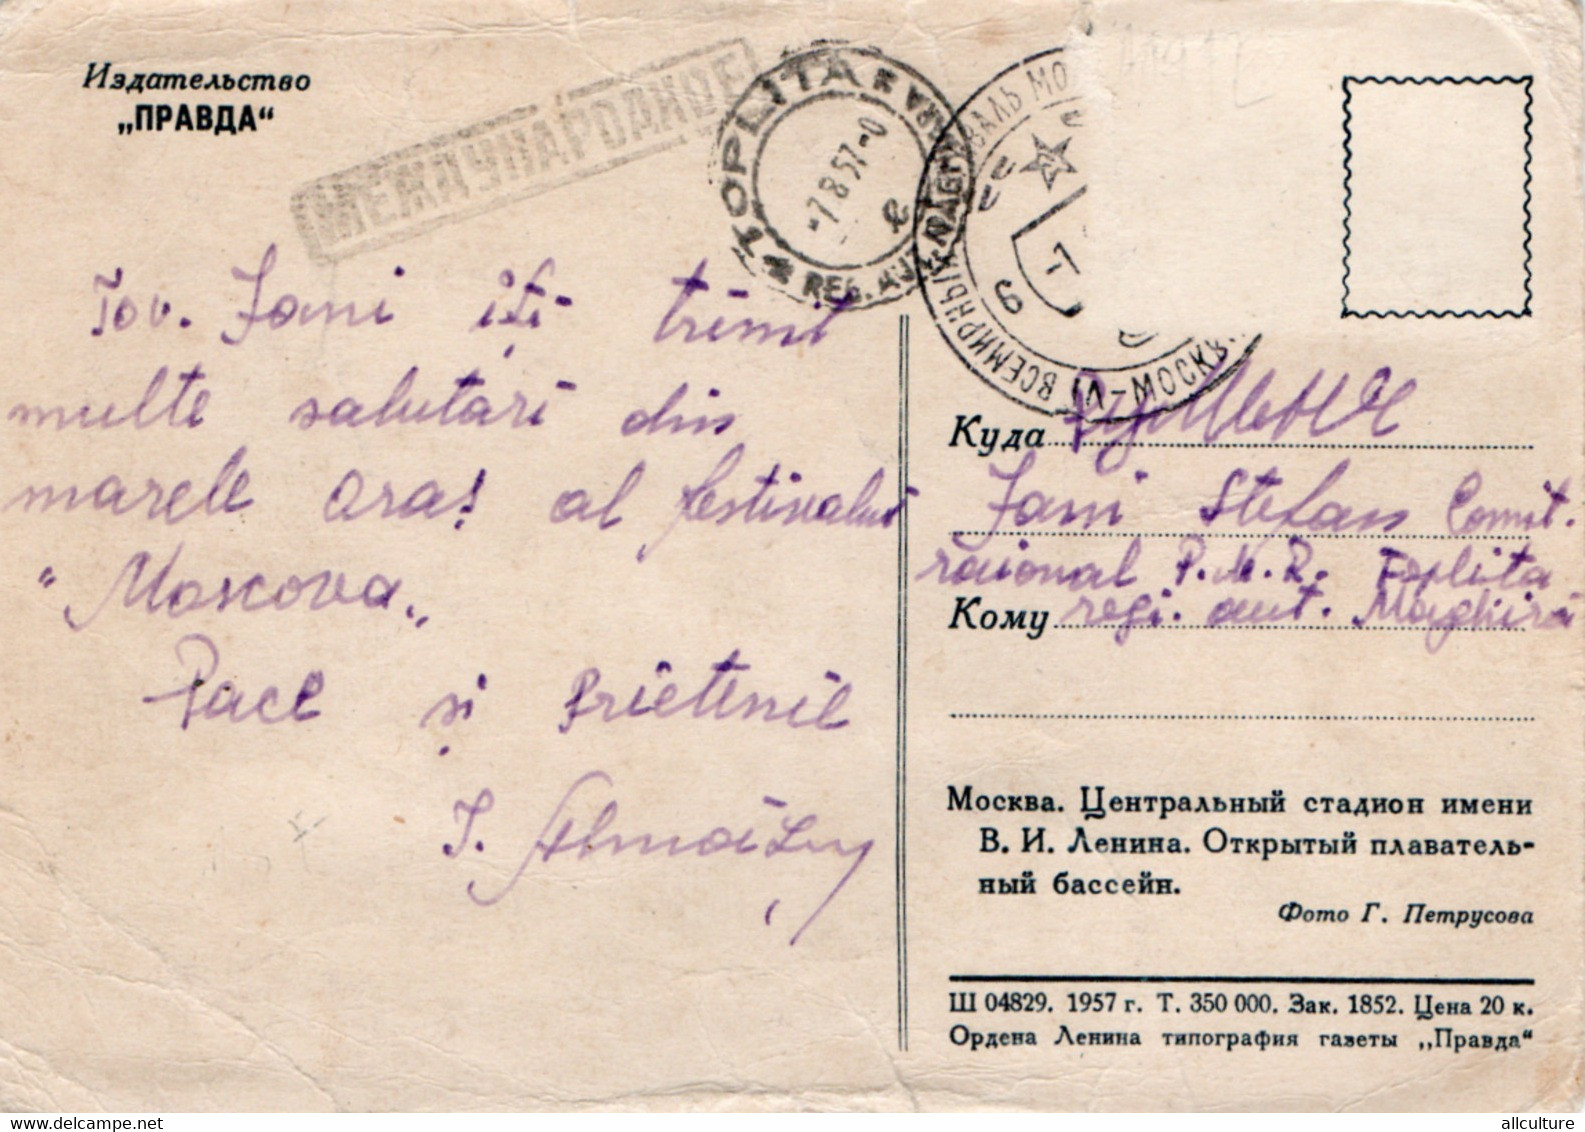 Издательство
„ПРАВДА“
МЕЖДУНАРОДНОЕ
TOPLITA
REG. AUT.
-7.8.57-0
ВСЕМИРНЫЙ
VI
МОСК
6
Tov. Jani iți trimit
multe salutări din
marele oraș al festivalului
"Moscova„
Pace și Prietenie
Куда
Jani Stefan Comit.
raional P.M.R. Toplita
Кому regi. aut. Maghiră
Москва. Центральный стадион имени
В. И. Ленина. Открытый плаватель-
ный бассейн.
Фото Г. Петрусова
Ш 04829. 1957 г. Т. 350 000. Зак. 1852. Цена 20 к.
Ордена Ленина типография газеты „Правда“
allculture